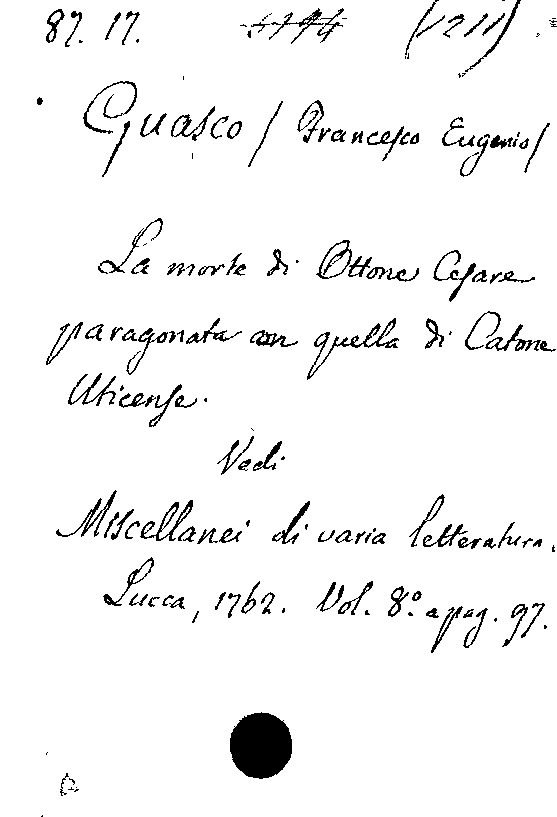 87. 17. (1211)
Guasco / Francesco Eugenio /
La morte di Ottone Cesare
paragonata con quella di Catone
Uticense.
Vedi
Miscellanei di varia letteratura.
Lucca, 1762. Vol. 8.º a pag. 97.